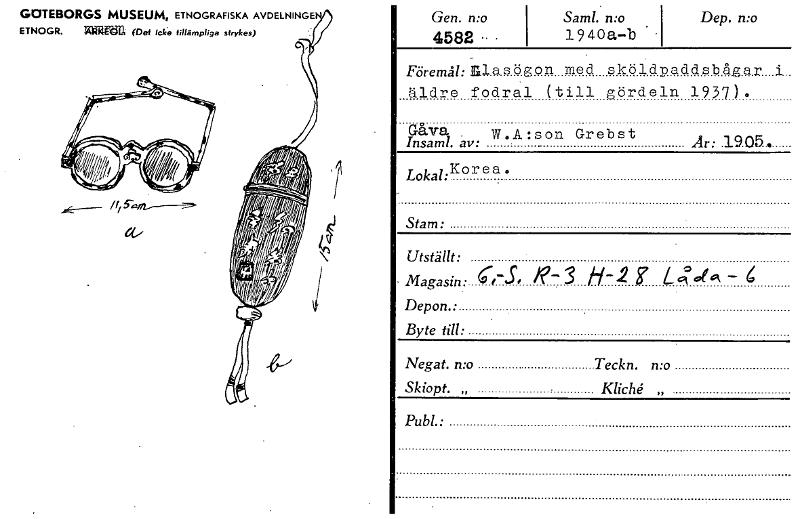 GÖTEBORGS MUSEUM, ETNOGRAFISKA AVDELNINGEN
ETNOGR. ARKEOL. (Det icke tillämpliga strykes)
11,5 cm
a
15 cm
b
Gen. n:o Saml. n:o Dep. n:o
4582 1940a-b
Föremål: Glasögon med sköldpaddsbågar i
äldre fodral (till gördeln 1937).
Gåva
Insaml. av: W.A:son Grebst År: 1905.
Lokal: Korea.
Stam:
Utställt:
Magasin: G,-S. R-3 H-28 Låda-6
Depon.:
Byte till:
Negat. n:o Teckn. n:o
Skiopt. „ Kliché „
Publ.: